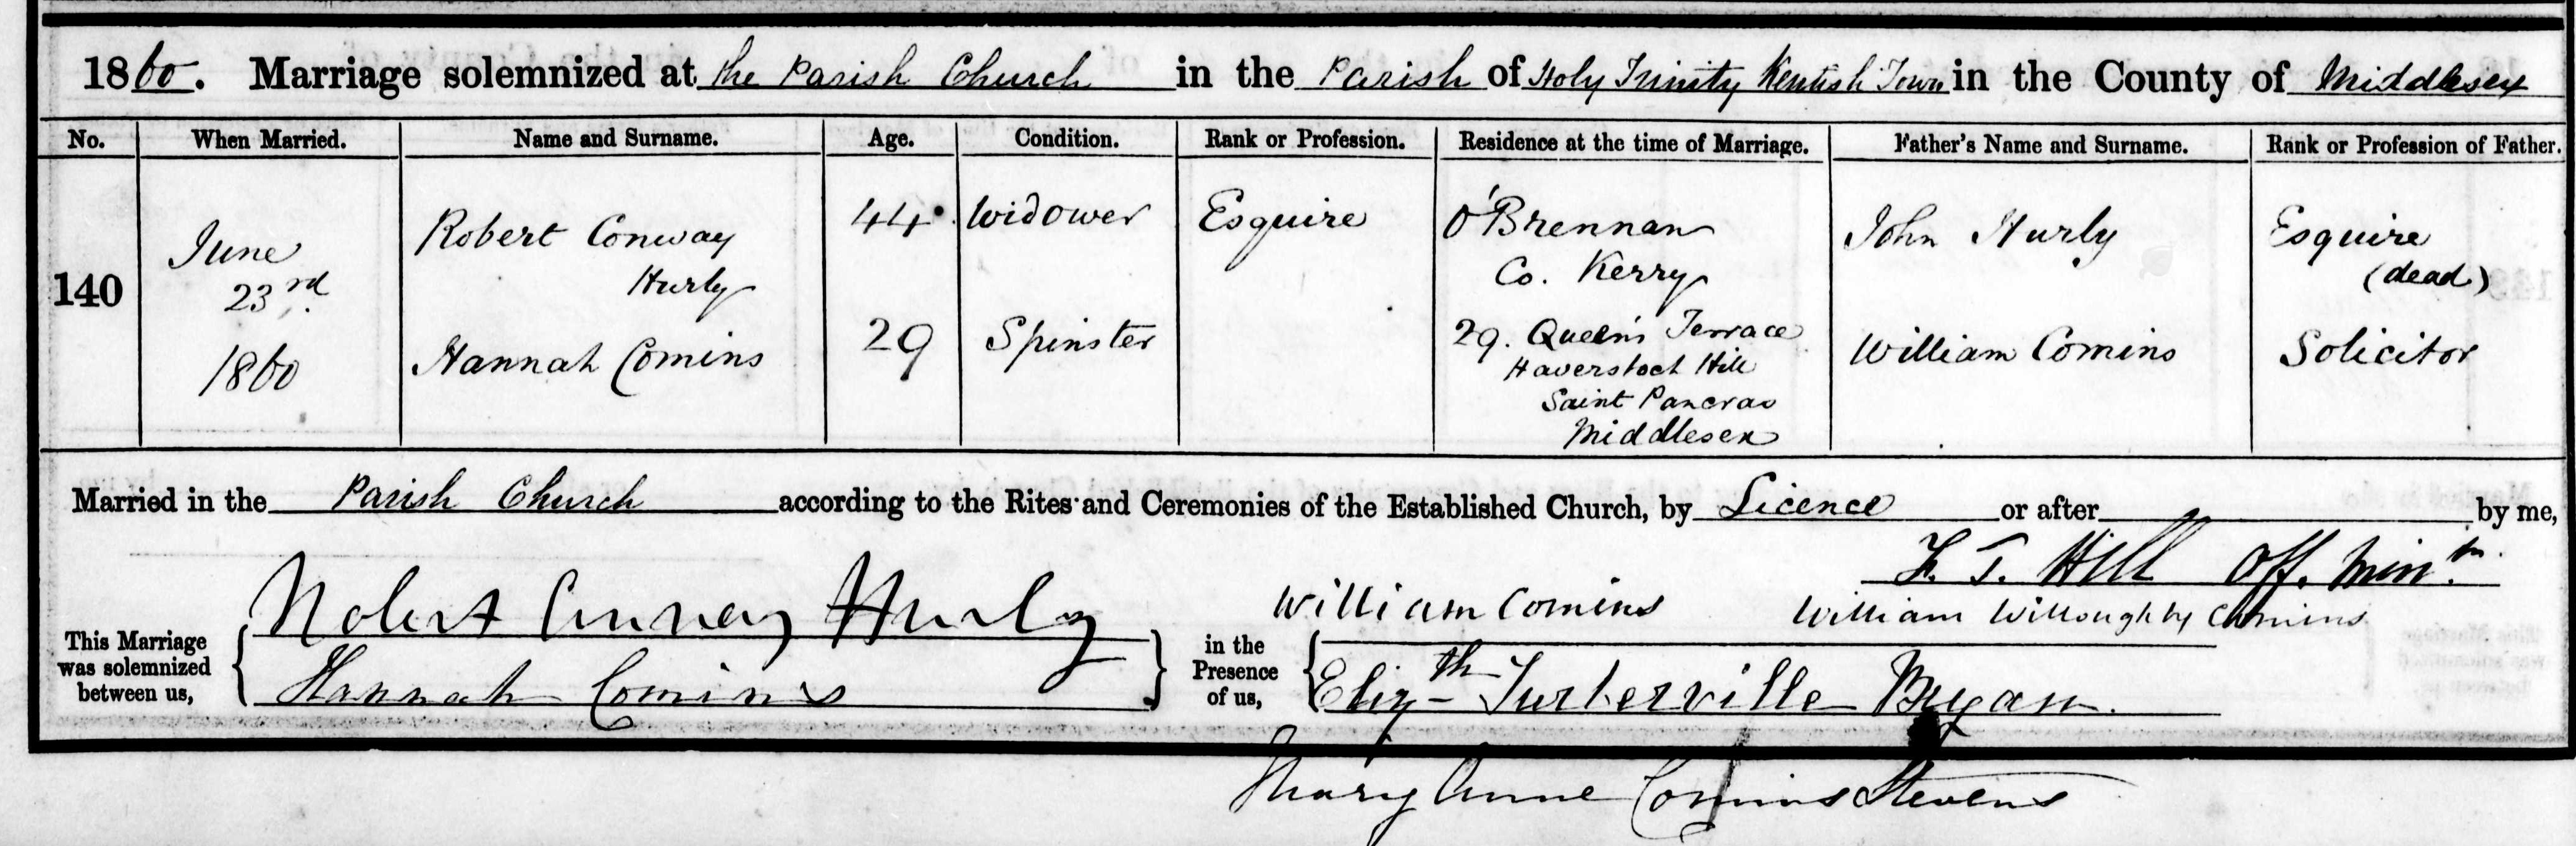 1860. Marriage solemnized at the Parish Church in the Parish of Holy Trinity Kentish Town in the County of Middlesex
No. When Married. Name and Surname. Age. Condition. Rank or Profession. Residence at the time of Marriage. Father's Name and Surname. Rank or Profession of Father.
140
June
23rd
1860
Robert Conway
Hurly
44. Widower Esquire
O'Brennan
Co. Kerry
John Hurly
Esquire
(dead)
Hannah Comins
29 Spinster
29. Queen's Terrace
Haverstock Hill
Saint Pancras
Middlesex
William Comins
Solicitor
Married in the Parish Church according to the Rites and Ceremonies of the Established Church, by Licence or after by me,
F. T. Hill Off. Minr.
This Marriage
was solemnized
between us,
Robert Conway Hurly
Hannah Comins
in the
Presence
of us,
William Comins
William Willoughby Comins
Elizth Turberville Bryan.
Mary Anne Comins Stevens